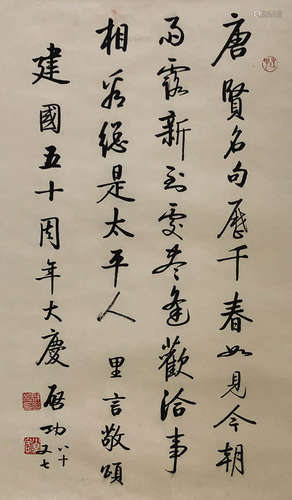 唐賢名句歷千春如見今朝
雨露新到處尽逢歡洽事
相看總是太平人 里言敬頌
建國五十周年大慶 啟功 八十又七